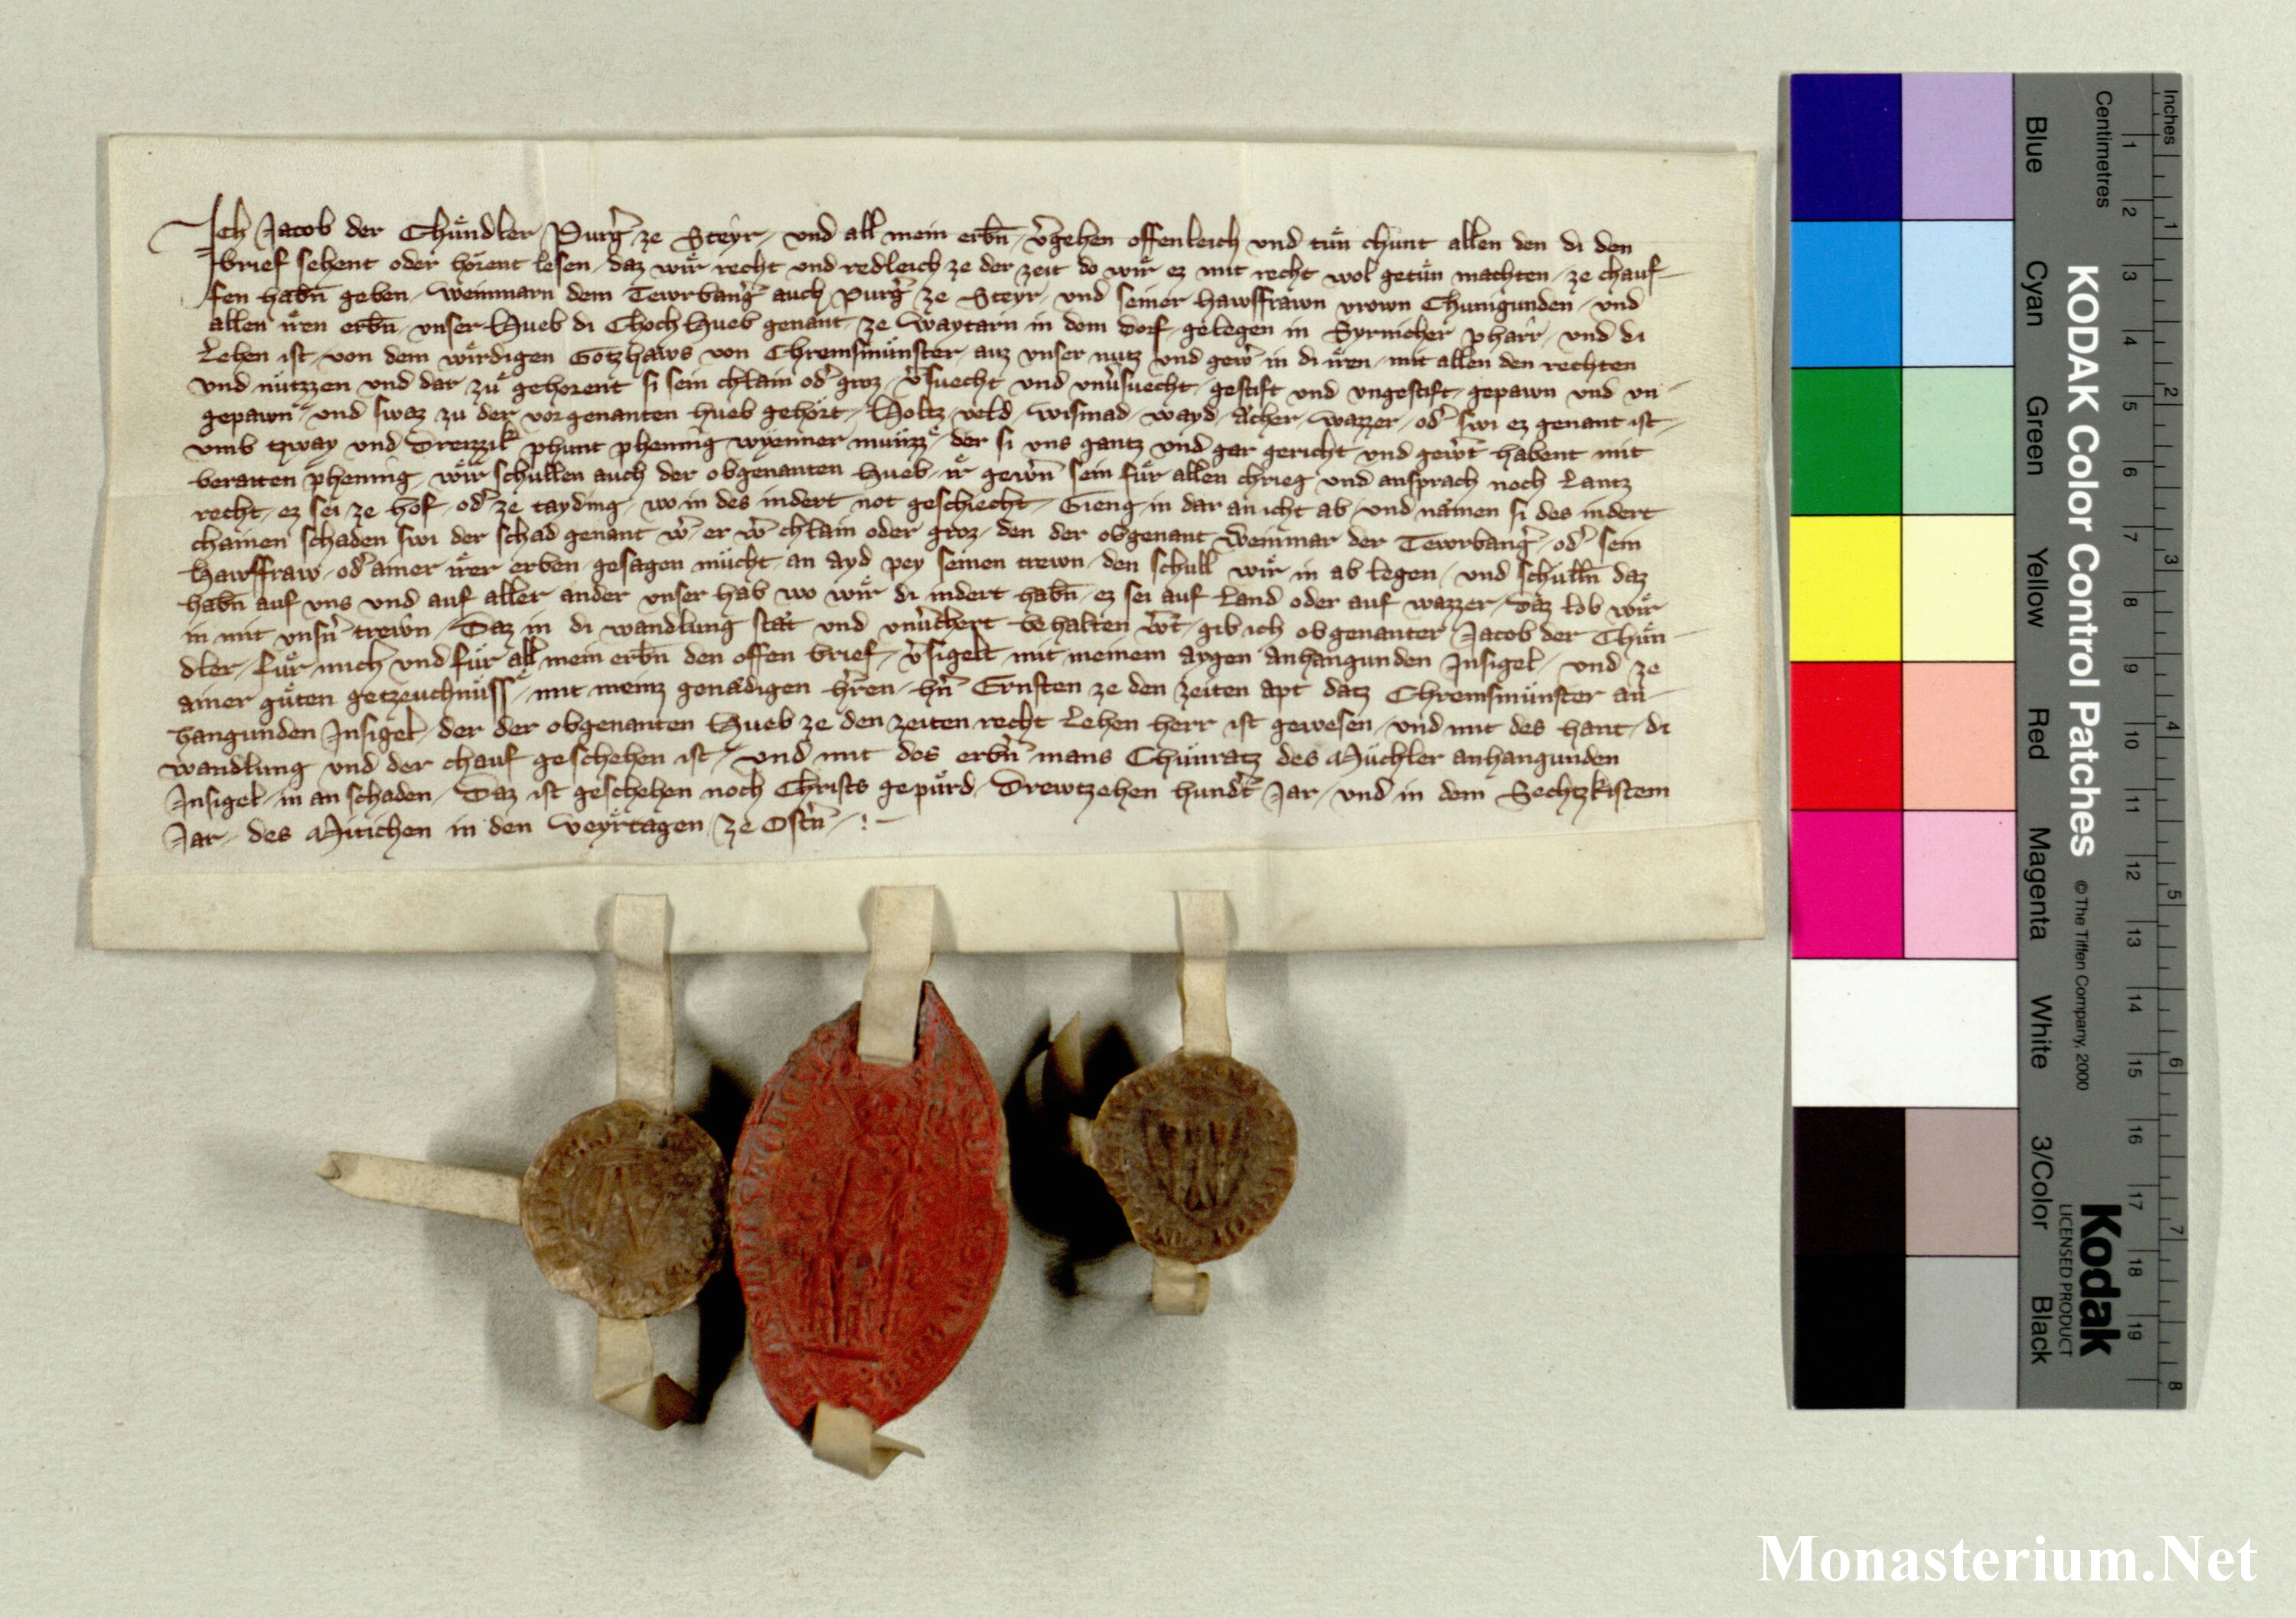 Ich Jacob der Chuͤndler Purg̾ ze Steyr und all mein erbn̄ v̾gehen offenleich und tuͤn chunt allen den di den
brief sehent oder hoͤrent lesen daz wiͤr recht und redleich ze der zeit do wiͤr ez mit recht wol getuͤn machten ze chauf
fen habn̄ geben Weinmarn dem Tewrbang̾ auch purg̾ ze Steyr und seiner hawsfrawn vrown Chunigunden und
allen iͤren erbn̄ unser Hueb di Choch Hueb genant ze Waytarn in dem dorf gelegen in Syrnicher pharr und di
Lehen ist von dem wiͤrdigen Gotzhaws von Chremsmuͤnster auz unser nutz und gew̾ in di iͤren mit allen den rechten
und nuͤtzzen und dar zuͤ gehorent si sein chlain od̾ groz v̾suecht und unv̾suecht gestift und ungestift gepawn und un
gepawn und swaz zu der vorgenanten hueb gehoͤrt Holtz veld wismad wayd aͤcher wazzer od̾ swi ez genant ist
umb tzway und Dreizzik phunt phenning wyenner muͤnzz der si uns gantz und gar gericht und gew̾t habent mit
beraiten phening wiͤr schullen auch der obgenanten Hueb iͤr gew̾n sein fuͤr allen chrieg und ansprach noch Lantz
recht ez sei ze hof od̾ ze tayding wo in des indert not geschiecht Gieng in dar an icht ab und naͤmen si des indert
chainen schaden swi der schad genant w̾ er w̾ chlain oder groz den der obgenant Weinmar der Tewrbang̾ od̾ sein
Hawsfraw od̾ ainer iͤrer erben gesagen muͤcht an ayd pey seinen trewn den schull wiͤr in ab legen und schulln̄ daz
habn̄ auf uns und auf aller ander unser hab wo wiͤr di indert habn̄ ez sei auf Land oder auf wazzer Daz lob wiͤr
in mit unsn̾ trewn Daz in di wandlung staͤt und unv̾chert behalten w̾t gib ich obgenanter Jacob der Chuͤn
dler fuͤr mich und fuͤr all mein erbn̄ den offen brief v̾sigelt mit meinem aygen anhangunden Insigel und ze
ainer guͤten getzeuchnuͤss mit meinz genaͤdigen h̾ren hn̾ Ernsten ze den zeiten apt datz Chremsmuͤnster an
hangunden Insigel der der obgenanten Hueb ze den zeiten recht Lehen herr ist gewesen und mit des hant di
wandlung und der chauf geschehen ist und mit des erbn̾ mans Chuͤnratz des Muͤchler anhangunden
Insigel in an schaden Daz ist geschehen noch Christs gepuͤrd Drewtzehen hund̾t Jar und in dem Sechtzkistem
Jar des Mitichen in den veyrtagen ze Ostn̾
Inches
Centimetres
1 2 3 4 5 6 7 8
1 2 3 4 5 6 7 8 9 10 11 12 13 14 15 16 17 18 19
KODAK Color Control Patches
© The Tiffen Company, 2000
Kodak
LICENSED PRODUCT
Blue
Cyan
Green
Yellow
Red
Magenta
White
3/Color
Black
Monasterium.Net